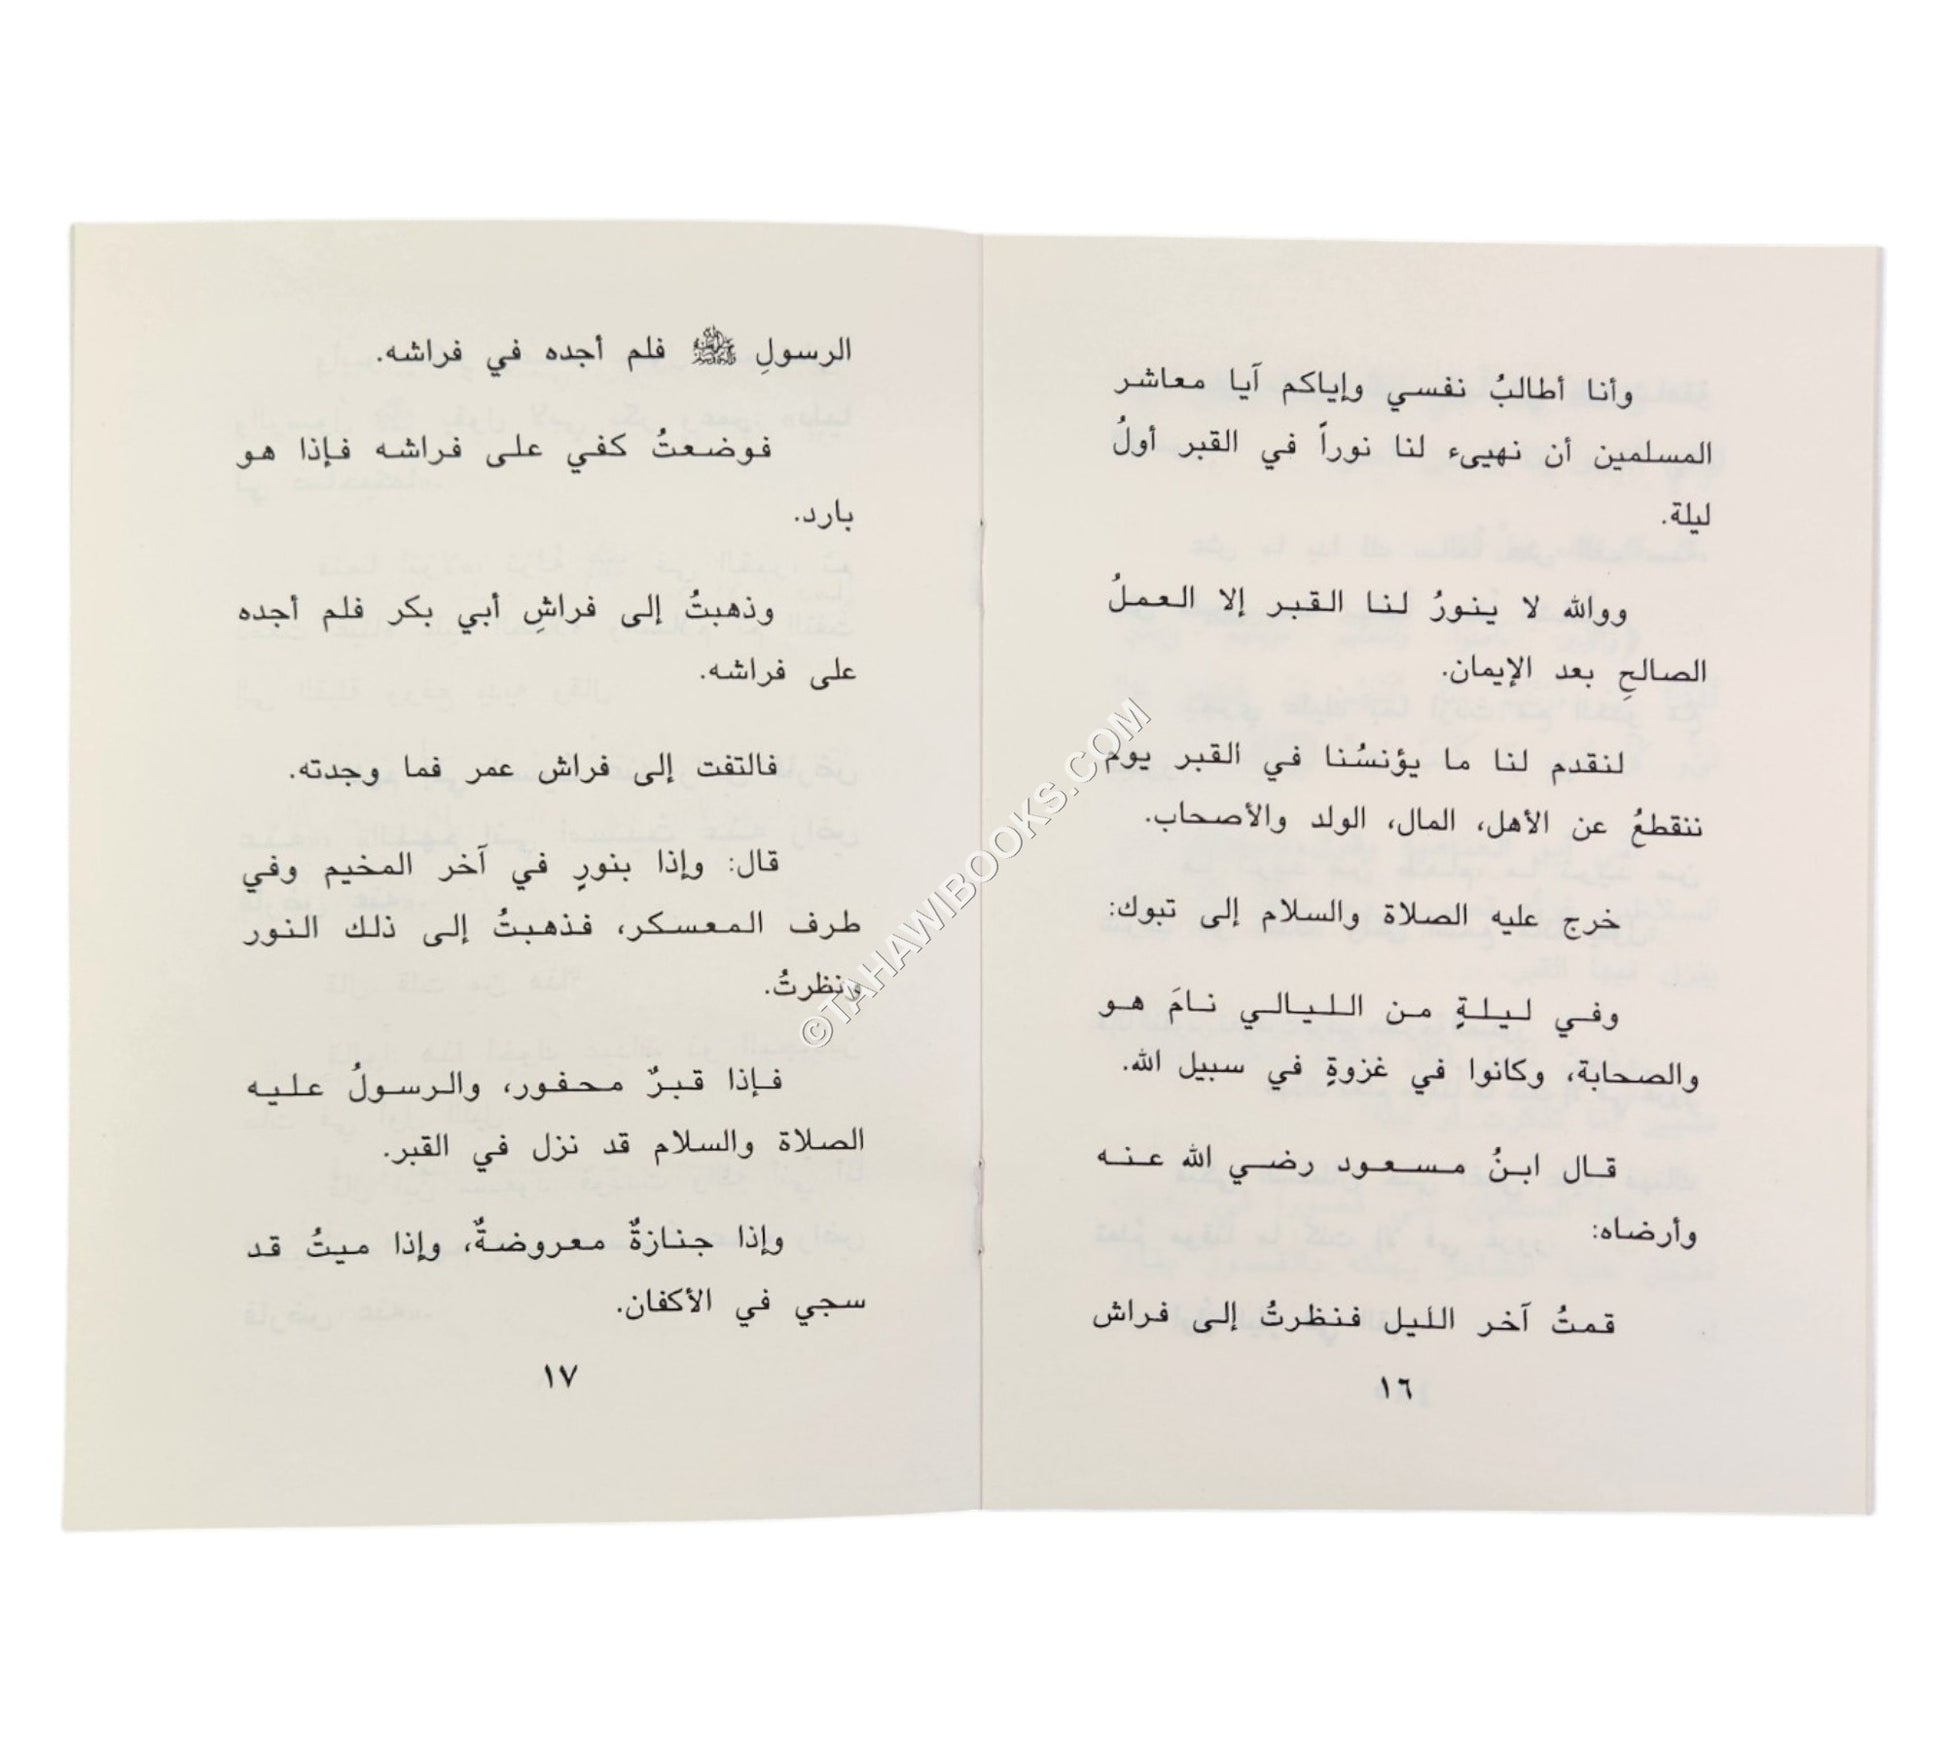 وأنا أطالبُ نفسي وإياكم آيا معاشر
المسلمين أن نهيىء لنا نوراً في القبر أولُ
ليلة.
ووالله لا ينورُ لنا القبر إلا العملُ
الصالحِ بعد الإيمان.
لنقدم لنا ما يؤنسُنا في القبر يوم
ننقطعُ عن الأهل، المال، الولد والأصحاب.
خرج عليه الصلاة والسلام إلى تبوك:
وفي ليلةٍ من الليالي نامَ هو
والصحابة، وكانوا في غزوةٍ في سبيل الله.
قال ابنُ مسعود رضي الله عنه
وأرضاه:
قمتُ آخر الليل فنظرتُ إلى فراش
١٦
الرسولِ ﷺ فلم أجده في فراشه.
فوضعتُ كفي على فراشه فإذا هو
بارد.
وذهبتُ إلى فراشِ أبي بكر فلم أجده
على فراشه.
فالتفت إلى فراش عمر فما وجدته.
قال: وإذا بنورٍ في آخر المخيم وفي
طرف المعسكر، فذهبتُ إلى ذلك النور
ونظرتُ.
فإذا قبرٌ محفور، والرسولُ عليه
الصلاة والسلام قد نزل في القبر.
وإذا جنازةٌ معروضةٌ، وإذا ميتُ قد
سجي في الأكفان.
١٧
©TAHAWIBOOKS.COM